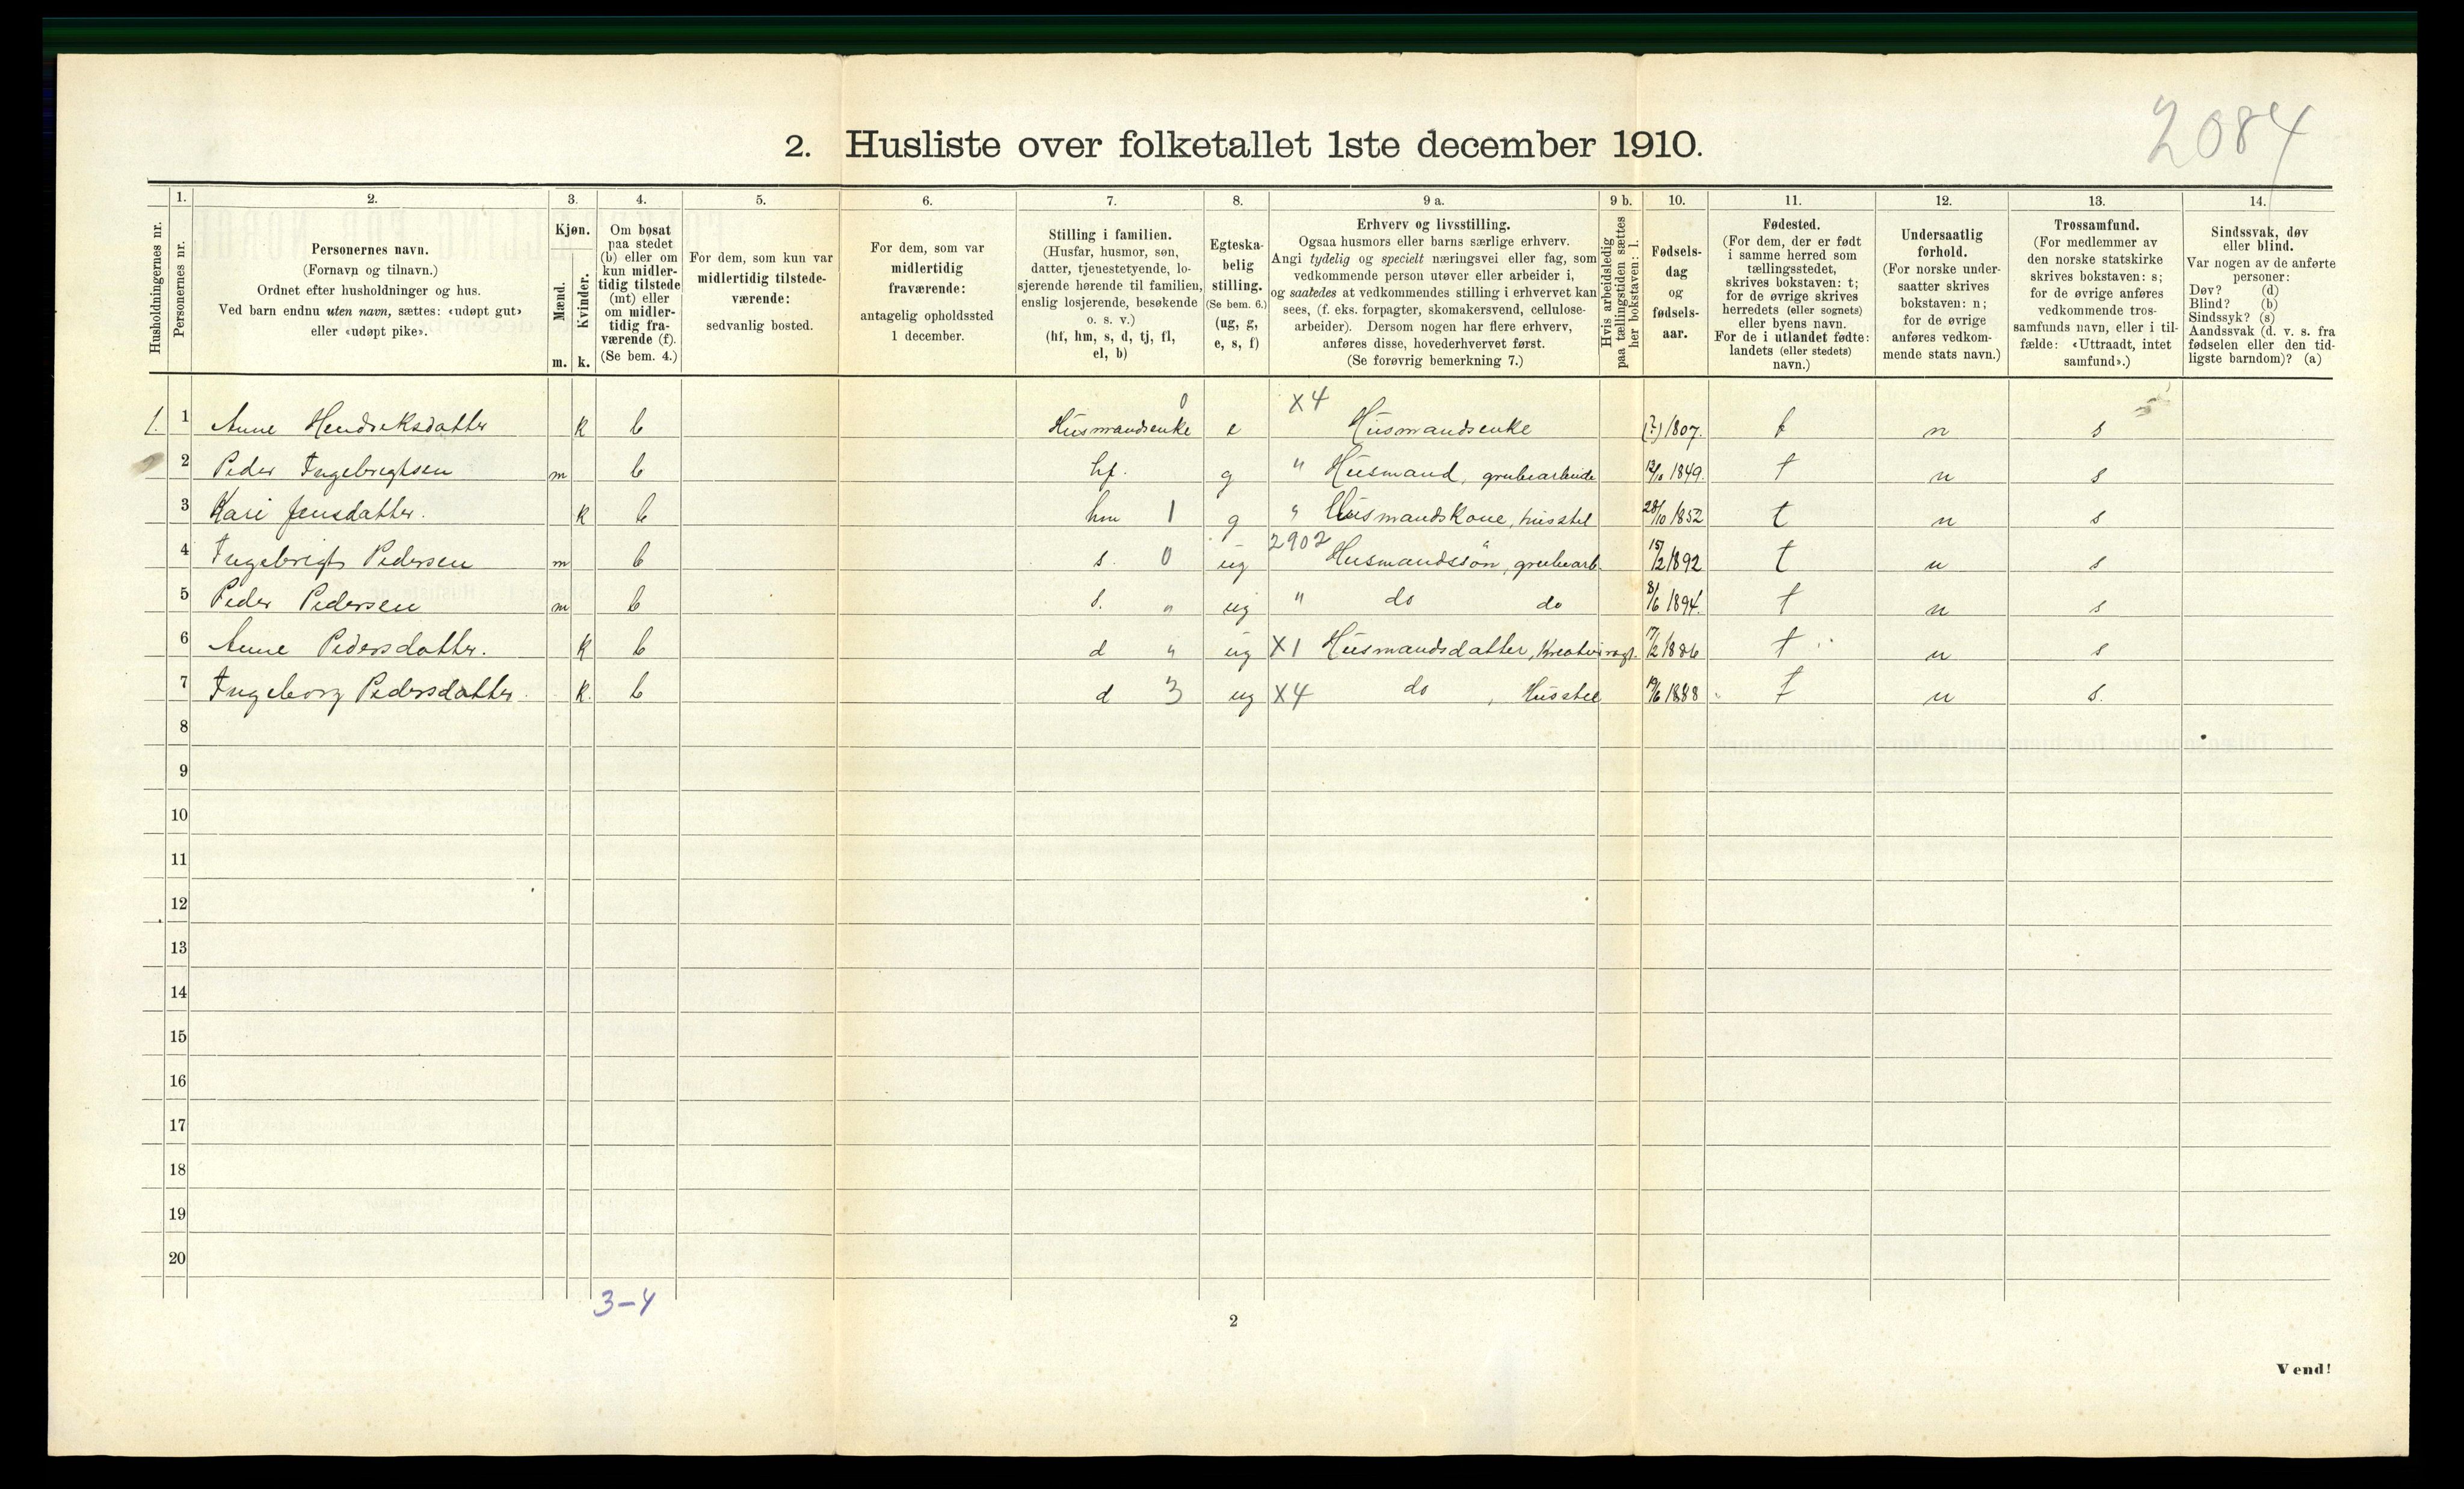 2084
2. Husliste over folketallet 1ste december 1910.
Husholdningernes nr.
1.
Personernes nr.
2.
Personernes navn.
(Fornavn og tilnavn.)
Ordnet efter husholdninger og hus.
Ved barn endnu uten navn, sættes: «udøpt gut»
eller «udøpt pike».
3.
Kjøn.
Mænd.
Kvinder.
m. k.
4.
Om bosat
paa stedet
(b) eller om
kun midler-
tidig tilstede
(mt) eller
om midler-
tidig fra-
værende (f).
(Se bem. 4.)
5.
For dem, som kun var
midlertidig tilstede-
værende:
sedvanlig bosted.
6.
For dem, som var
midlertidig
fraværende:
antagelig opholdssted
1 december.
7.
Stilling i familien.
(Husfar, husmor, søn,
datter, tjenestetyende, lo-
sjerende hørende til familien,
enslig losjerende, besøkende
o. s. v.)
(hf, hm, s, d, tj, fl,
el, b)
8.
Egteska-
belig
stilling.
(Se bem. 6.)
(ug, g,
e, s, f)
9 a.
Erhverv og livsstilling.
Ogsaa husmors eller barns særlige erhverv.
Angi tydelig og specielt næringsvei eller fag, som
vedkommende person utøver eller arbeider i,
og saaledes at vedkommendes stilling i erhvervet kan
sees, (f. eks. forpagter, skomakersvend, cellulose-
arbeider). Dersom nogen har flere erhverv,
anføres disse, hovederhvervet først.
(Se forøvrig bemerkning 7.)
9 b.
Hvis arbeidsledig
paa tællingstiden sættes
her bokstaven: l.
10.
Fødsels-
dag
og
fødsels-
aar.
11.
Fødested.
(For dem, der er født
i samme herred som
tællingsstedet,
skrives bokstaven: t;
for de øvrige skrives
herredets (eller sognets)
eller byens navn.
For de i utlandet fødte:
landets (eller stedets)
navn.)
12.
Undersaatlig
forhold.
(For norske under-
saatter skrives
bokstaven: n;
for de øvrige
anføres vedkom-
mende stats navn.)
13.
Trossamfund.
(For medlemmer av
den norske statskirke
skrives bokstaven: s;
for de øvrige anføres
vedkommende tros-
samfunds navn, eller i til-
fælde: «Uttraadt, intet
samfund».)
14.
Sindssvak, døv
eller blind.
Var nogen av de anførte
personer:
Døv? (d)
Blind? (b)
Sindssyk? (s)
Aandssvak (d. v. s. fra
fødselen eller den tid-
ligste barndom)? (a)
1. 1 Anne Hendriksdatter k b Husmandsenke 0 e X4 Husmandsenke (?) 1807. t n s
2 Peder Ingebrigtsen m b hf. g " Husmand, grubearbeide 1849. t n s
3 Kari Jensdatter. k b hm 1 g " Husmandskone, husstel 28/10 1852 t n s
4 Ingebrigt Pedersen m b s. 0 ug 2902 Husmandssøn, grubearb. 15/2 1892 t n s
5 Peder Pedersen m b s. " ug " do do 8/6 1894. t n s
6 Anne Pedersdatter. k b d " ug X1 Husmandsdatter, Kreaturrøgt. 17/2 1886 t n s
7 Ingeborg Pedersdatter. k. b d 3 ug X4 do, Husstel 19/6 1888 t n s.
8
9
10
11
12
13
14
15
16
17
18
19
20
3-4
2
Vend!